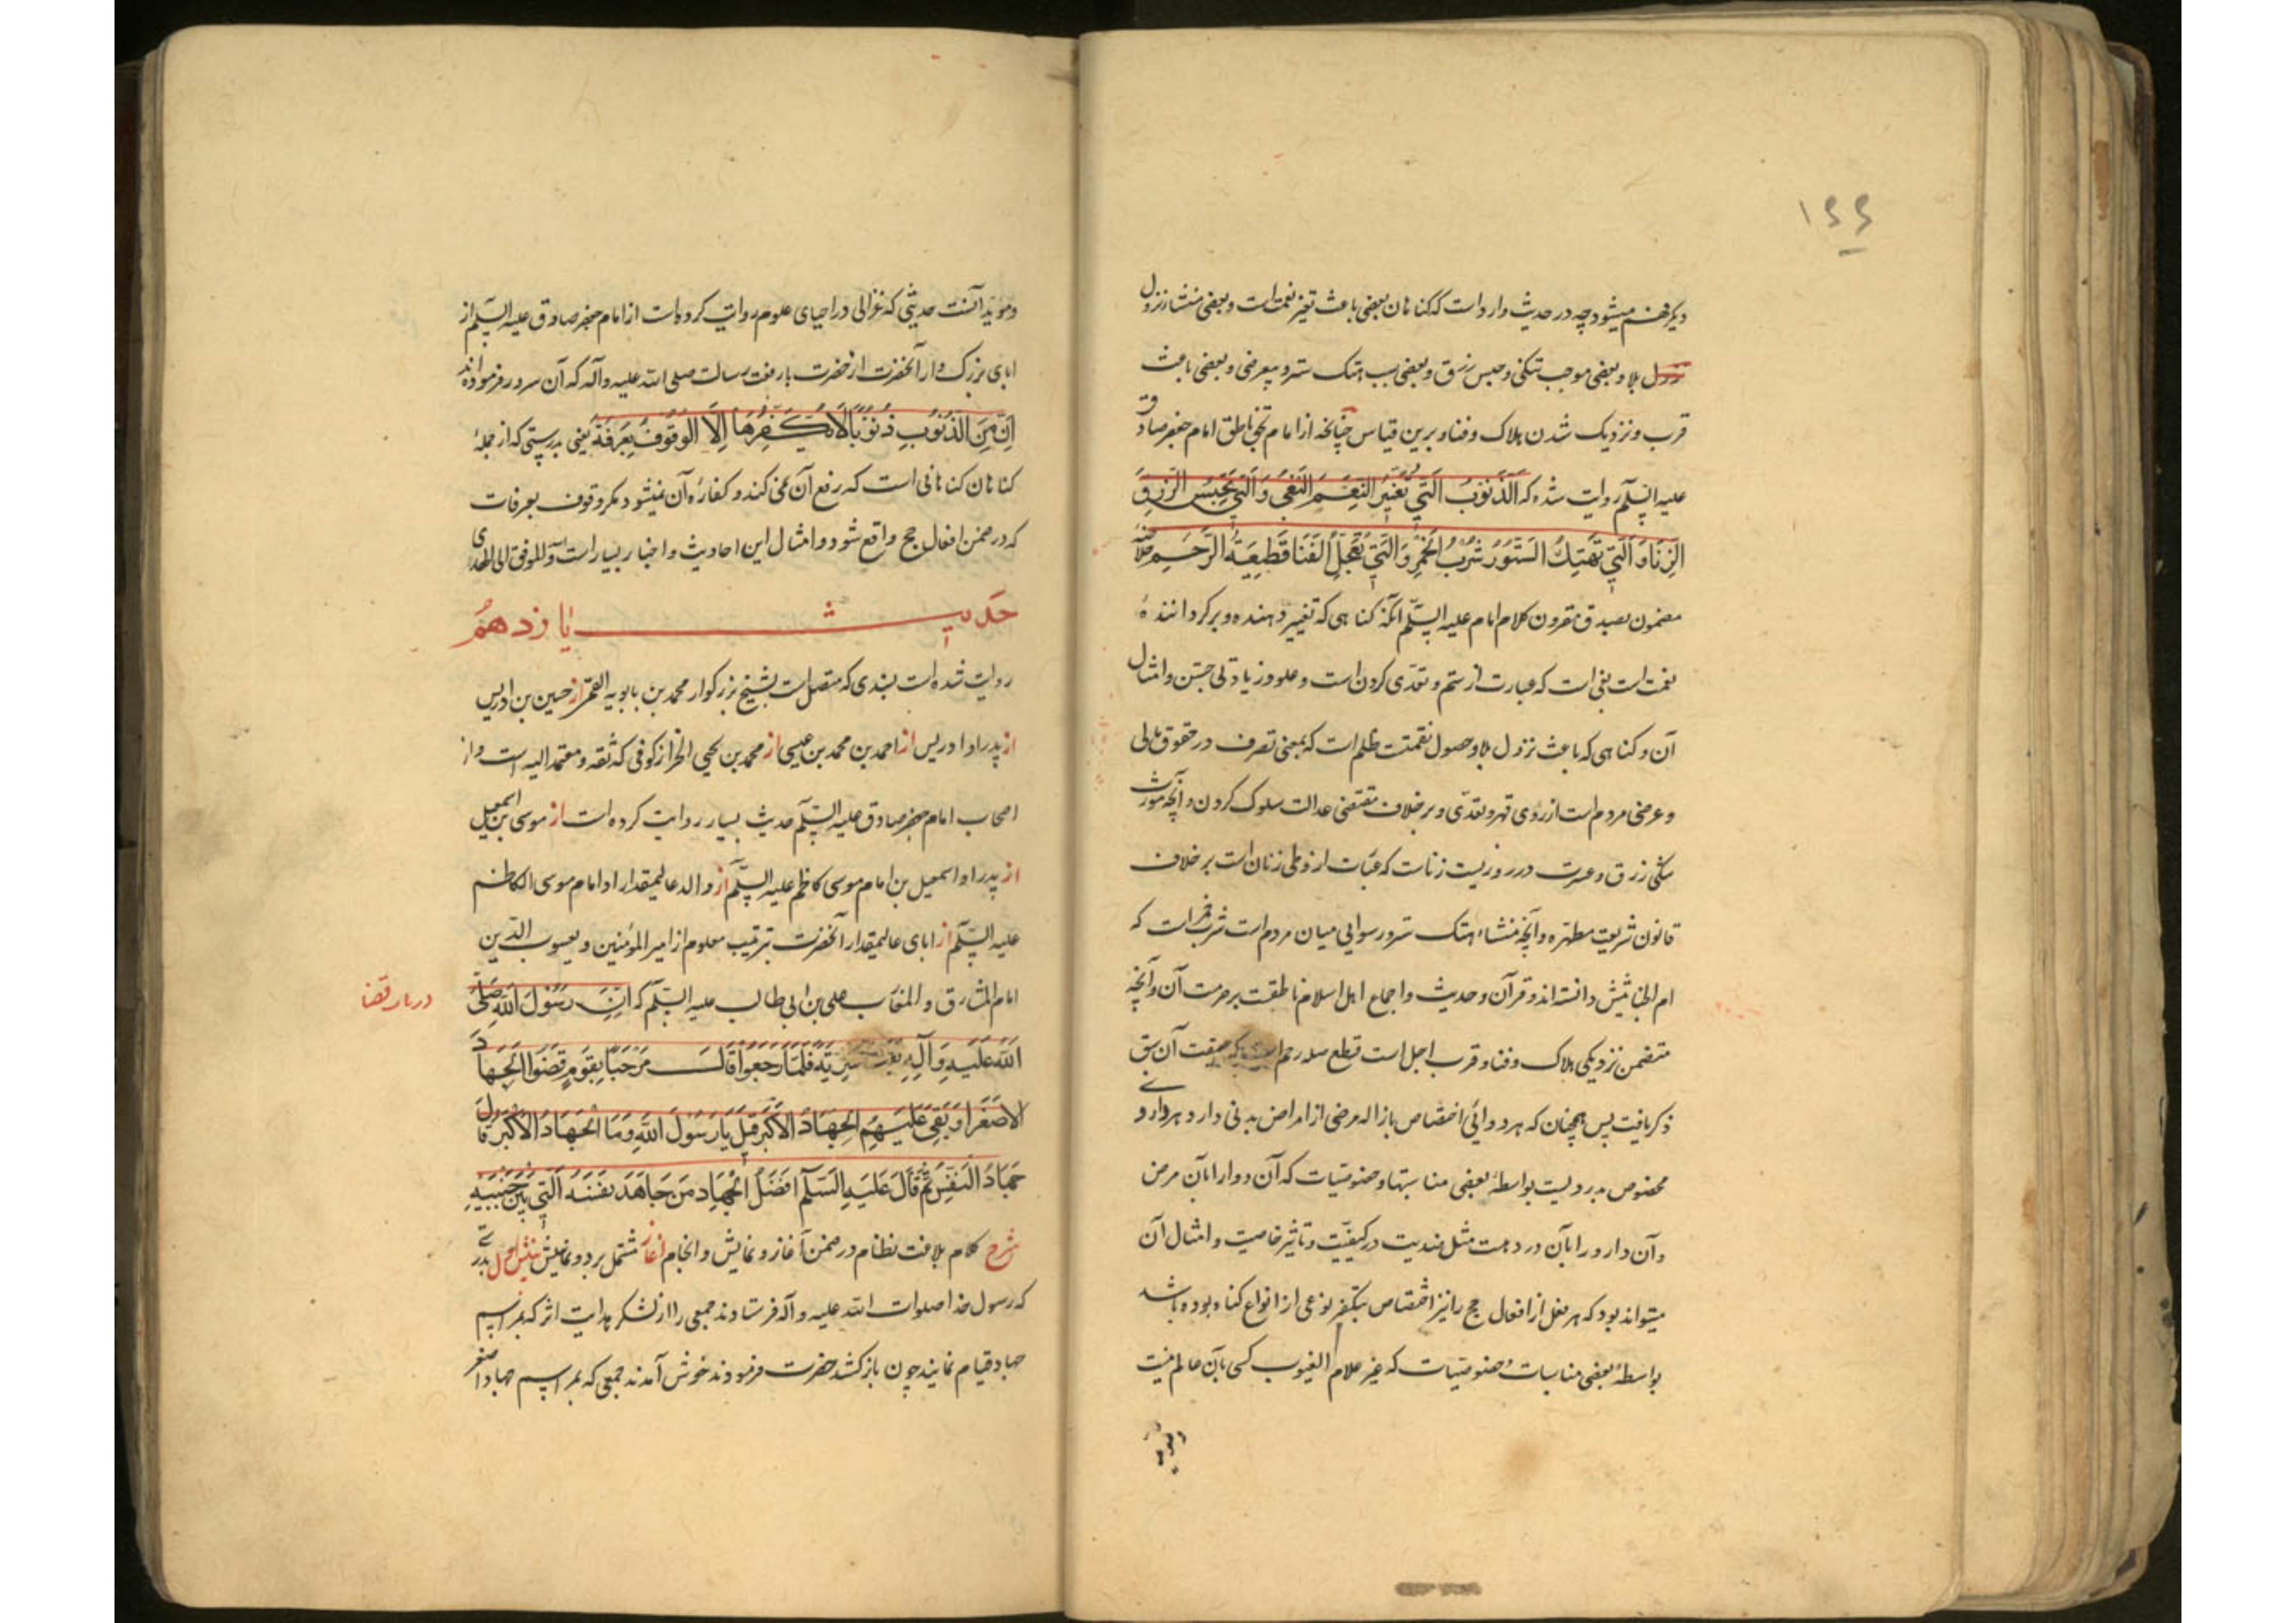 ۱۶۶
دیگر فهم میشود چه در حدیث وارد است که کناهان بعضی باعث تغیر نعمت است و بعضی منشاء نزول
بلا و بعضی موجب تنکی و حبس رزق و بعضی سبب هتک ستر و بیعرضی و بعضی باعث
قرب و نزدیک شدن هلاک و فنا و برین قیاس چنانچه از امام بحق ناطق امام جعفر صادق
علیه السلم روایت شده که الذُّنُوبُ الَّتی تُغَیِّرُ النِّعَمَ البَغیُ وَالَّتی تَحبِسُ الرِّزقَ
الزِّنا وَالَّتی تَهتِكُ السُّتُورَ شُربُ الخَمرِ وَالَّتی تُعَجِّلُ الفَنا قَطیعَةُ الرَّحِمِ خلاصه
مضمون بصدق مقرون کلام امام علیه السلم آنکه کناهی که تغییر دهنده و برگرداننده
نعمت است بغی است که عبارت از ستم و تعدی کردن است و علو و زیادتی جستن و امثال
آن و کناهی که باعث نزول بلا و حصول نقمتست ظلم است که بمعنی تصرف در حقوق مالی
و عرضی مردم است از روی قهر و تعدی و بر خلاف مقتضی عدالت سلوک کردن و آنچه مورث
تنکی رزق و عسرت در روزیست زناست که عبارت از وطی زنان است بر خلاف
قانون شریعت مطهره و آنچه منشاء هتک ستر و رسوایی میان مردم است شرب خمر است که
ام الخبائثش دانسته اند و قرآن و حدیث و اجماع اهل اسلام ناطقست بر حرمت آن و آنچه
متضمن نزدیکی هلاک و فنا و قرب اجل است قطع صله رحم است که حقیقت آن سبق
ذکر یافت پس همچنان که هر دوائی اختصاص بازاله مرضی از امراض بدنی دارد و هر داروے
مخصوص بدردیست بواسطهٔ بعضی مناسبتها و خصوصیات که آن دوا را بآن مرض
و آن دارو را بآن درد هست مثل ضدیت در کیفیت و تاثیر خاصیت و امثال آن
میتواند بود که هر فعل از افعال حج را نیز اختصاص بتکفیر نوعی از انواع کناه بوده باشد
بواسطهٔ بعضی مناسبات و خصوصیات که غیر علام الغیوب کسی بآن عالم نیست
و مؤید
و مؤید آنست حدیثی که غزالی در احیای علوم روایت کرده است از امام جعفر صادق علیه السلم از
ابای بزرک وار آنحضرت از حضرت با رفعت رسالت صلی الله علیه وآله که آن سرور فرموده اند
اِنَّ مِنَ الذُّنُوبِ ذُنُوبًا لا یُکَفِّرُها اِلَّا الوُقُوفُ بِعَرَفَةَ یعنی بدرستی که از جملهٔ
کناهان کناهانی است که رفع آن نمی کند و کفارهٔ آن نمیشود مکر وقوف بعرفات
که در ضمن افعال حج واقع شود و امثال این احادیث و اخبار بسیار است والله الموفق الی الهدی
حدیث یازدهم
روایت شده است بسندی که متصل است بشیخ بزرکوار محمد بن بابویه القمی از حسین بن ادریس
از پدر او ادریس از احمد بن محمد بن عیسی از محمد بن یحیی الخزاز کوفی که ثقه و معتمد الیه است و از
اصحاب امام جعفر صادق علیه السلم حدیث بسیار روایت کرده است از موسی بن اسمعیل
از پدر او اسمعیل بن امام موسی کاظم علیه السلم از والد عالیمقدار او امام موسی الکاظم
علیه السلم از ابای عالیمقدار آنحضرت بترتیب معلوم از امیر المؤمنین و یعسوب الدین
امام المشارق و المغارب علی بن ابی طالب علیه السلم که اِنَّ رَسُولَ اللهِ صَلَّی
اللهُ عَلَیهِ وَآلِهِ بَعَثَ سَرِیَّةً فَلَمّا رَجَعُوا قالَ مَرحَبًا بِقَومٍ قَضَوُا الجِهادَ
الاَصغَرَ وَ بَقِیَ عَلَیهِمُ الجِهادُ الاَکبَرُ قیلَ یا رَسُولَ اللهِ وَمَا الجِهادُ الاَکبَرُ قالَ
جِهادُ النَّفسِ ثُمَّ قالَ عَلَیهِ السَّلَمُ اَفضَلُ الجِهادِ مَن جاهَدَ نَفسَهُ الَّتی بَینَ جَنبَیهِ
شرح کلام بلاغت نظام در ضمن آغاز و نمایش و انجام آغاز مشتمل بر دو نمایش نمایش اول بدرستی
که رسول خدا صلوات الله علیه و آله فرستادند جمعی را از لشکر هدایت اثر که بمراسم
جهاد قیام نمایند چون باز کشتند حضرت فرمودند خوش آمدند جمعی که بمراسم جهاد اصغر